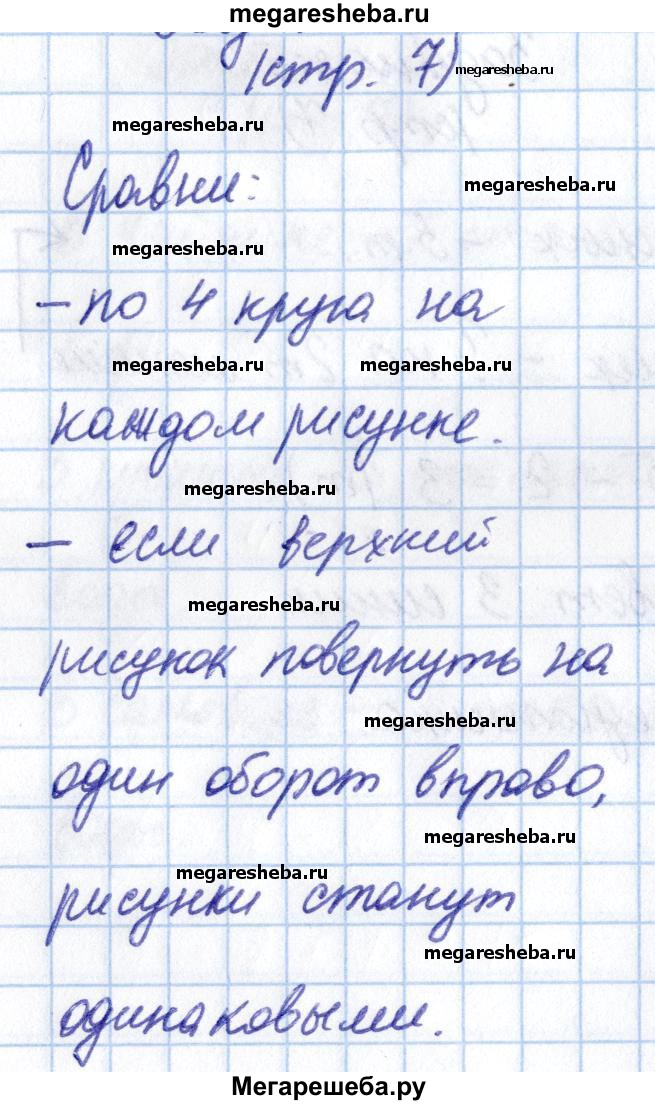 megaresheba.ru
(стр. 7) megaresheba.ru
megaresheba.ru
Сравни: megaresheba.ru
megaresheba.ru
- по 4 круга на
megaresheba.ru megaresheba.ru
каждом рисунке.
megaresheba.ru
- если верхний
megaresheba.ru
рисунок повернуть на
megaresheba.ru
один оборот вправо,
megaresheba.ru
megaresheba.ru
рисунки станут
megaresheba.ru
одинаковыми.
Мегарешеба.ру